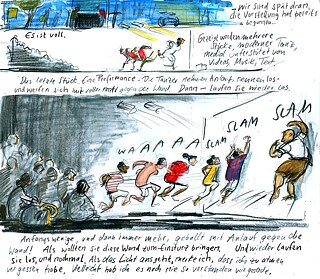 wir sind spät dran,
die Vorstellung hat bereits
begonnen...
Es ist voll.
Gezeigt werden mehrere
Stücke, moderner Tanz,
medial unterstützt von
Videos, Musik, Text.
Das letzte Stück. Eine Performance. Die Tänzer nehmen Anlauf, rennen los-
und werfen sich mit voller Kraft gegen die Wand. Dann - laufen sie wieder los.
WAAAAA
SLAM
SLAM
SLAM
SLAM
Anfangs wenige, und dann immer mehr, geballt mit Anlauf gegen die
Wand! Als wollten sie diese Wand zum Einsturz bringen. Und wieder laufen
sie los, und nochmal. Als das Licht ausgeht, merke ich, dass ich zu atmen
vergessen habe. Vielleicht hab ich es noch nie so verstanden wie gerade.